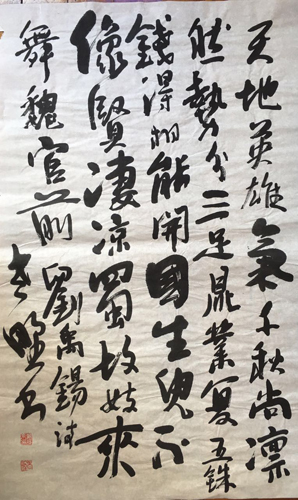 天地英雄氣千秋尚凛
然勢分三足鼎業复五銖
錢得相能開國生兒不
像賢凄凉蜀故妓來
舞魏宫前
劉禹錫詩
書